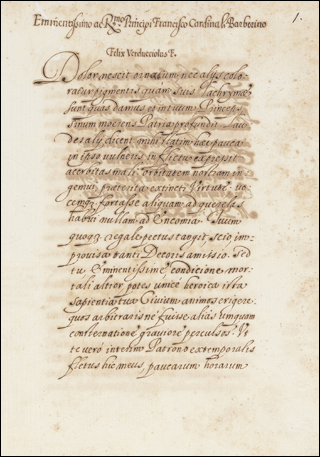 1.
Eminentissimo ac R.mo Principi Francisco Cardinali Barberino
Felix Verducciolus F.
Dolor nescit ornatum, nec alijs colo-
ratur pigmentis quam suis lachrymis
sunt quas damus et in tuum Princeps
sinum moerens Patria profundit. Lau-
des alij dicent mihi
in ipso vulneris in flictu expressit
acerbitas mali orbitatem nostram in-
gemui, praeterita extincti Virtute: uo-
cemq. fortasse aliquam ad quaerelas
habui nullam ad Encomia. Tuum
quoq. regale pectus tangit, scio im-
provisa tanti Decoris amissio. Sed
tu Eminentissime condicione mor-
tali altior potes unice heroica ista
sapientia tua Civium animos erigere
quos arbitraris ne fuisse alias umquam
consternatione graviore perculsos. Vt
te verò interim Patrono extemporalis
fletus hic meus, paucarum horarum